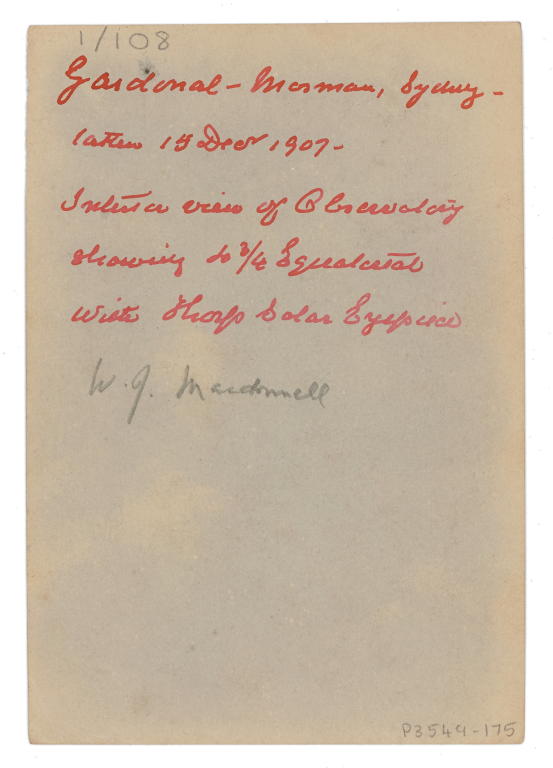 1/108
Gardonal - Mosman, Sydney -
taken 15 Decr 1907 -
Interior view of Observatory
showing 3/4 Equatorial
with Thorp Solar Eyepiece
W. J. Macdonnell
P3549-175